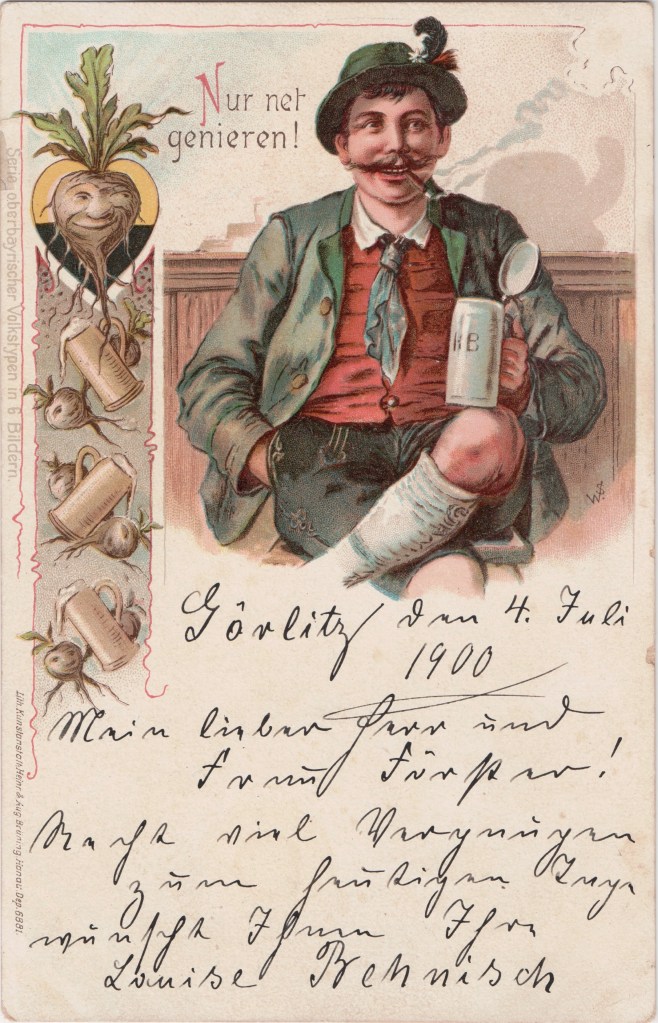 Nur net
genieren!
Serie oberbayrischer Volkstypen in 6 Bildern.
HB
WS
Görlitz, den 4. Juli
1900
Mein lieber Herr und
Frau Förster!
Recht viel Vergnügen
zum heutigen Tage
wünscht Ihnen Ihre
Louise Behnisch
Lith. Kunstanstalt Heinr. & Aug. Brüning, Hanau. Dep. 6881.